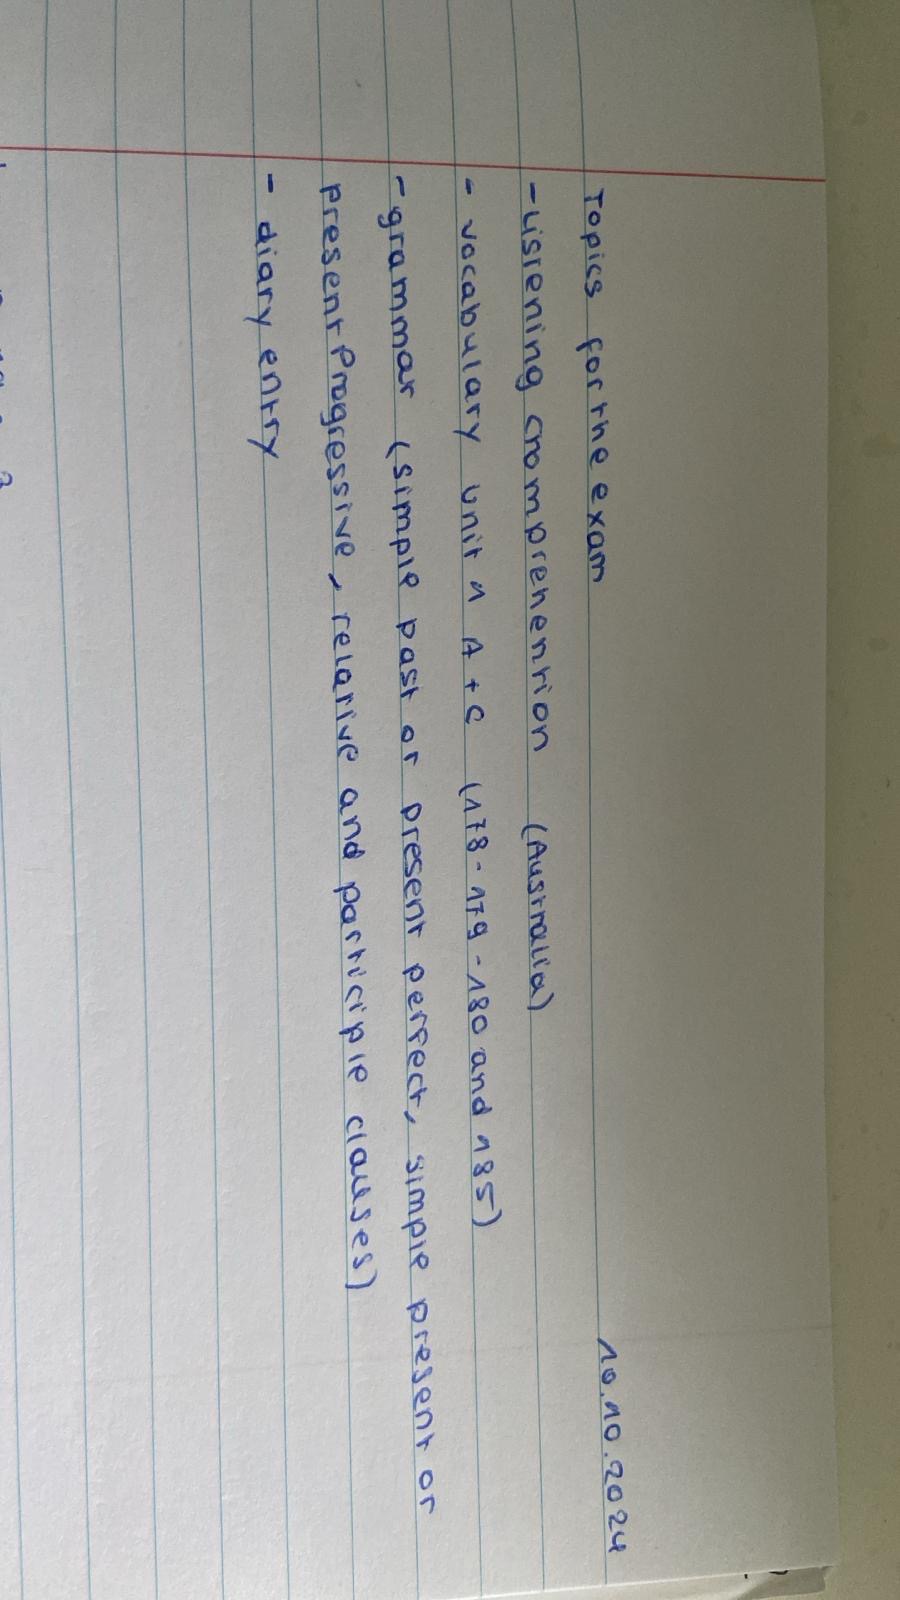 10.10.2024
Topics for the exam
- Listening cromprehention (Australia)
- vocabulary unit 1 A + C (178 - 179 - 180 and 185)
- grammar (simple past or present perfect, simple present or
present Progressive, relative and participle clauses)
- diary entry